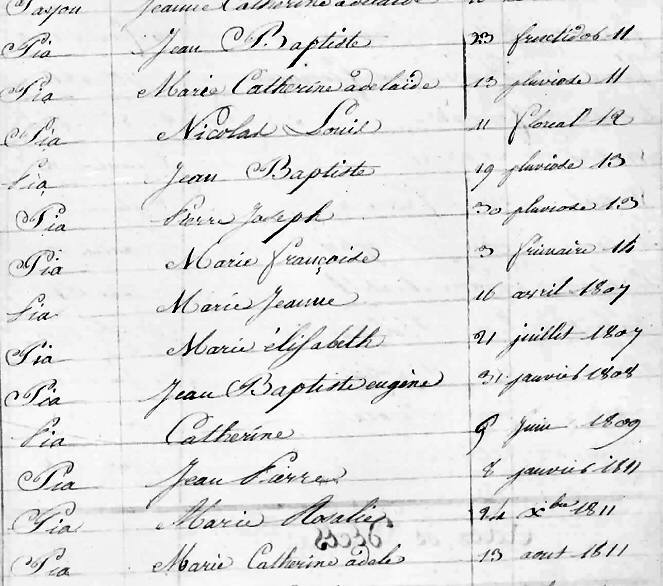 Jeanne Catherine adelaide
Pia Jean Baptiste 23 fructidor 11
Pia Marie Catherine adelaïde 13 pluviose 11
Pia Nicolas Louis 11 floreal 12
Pia Jean Baptiste 19 pluviose 13
Pia Pierre Joseph 30 pluviose 13
Pia Marie françoise 3 frimaire 14
Pia Marie Jeanne 16 avril 1807
Pia Marie élisabeth 21 juillet 1807
Pia Jean Baptiste eugène 31 janvier 1808
Pia Catherine Juin 1809
Pia Jean Pierre 8 janvier 1811
Pia Marie Rosalie 24 Xbre 1811
Pia Marie Catherine adele 13 aout 1811